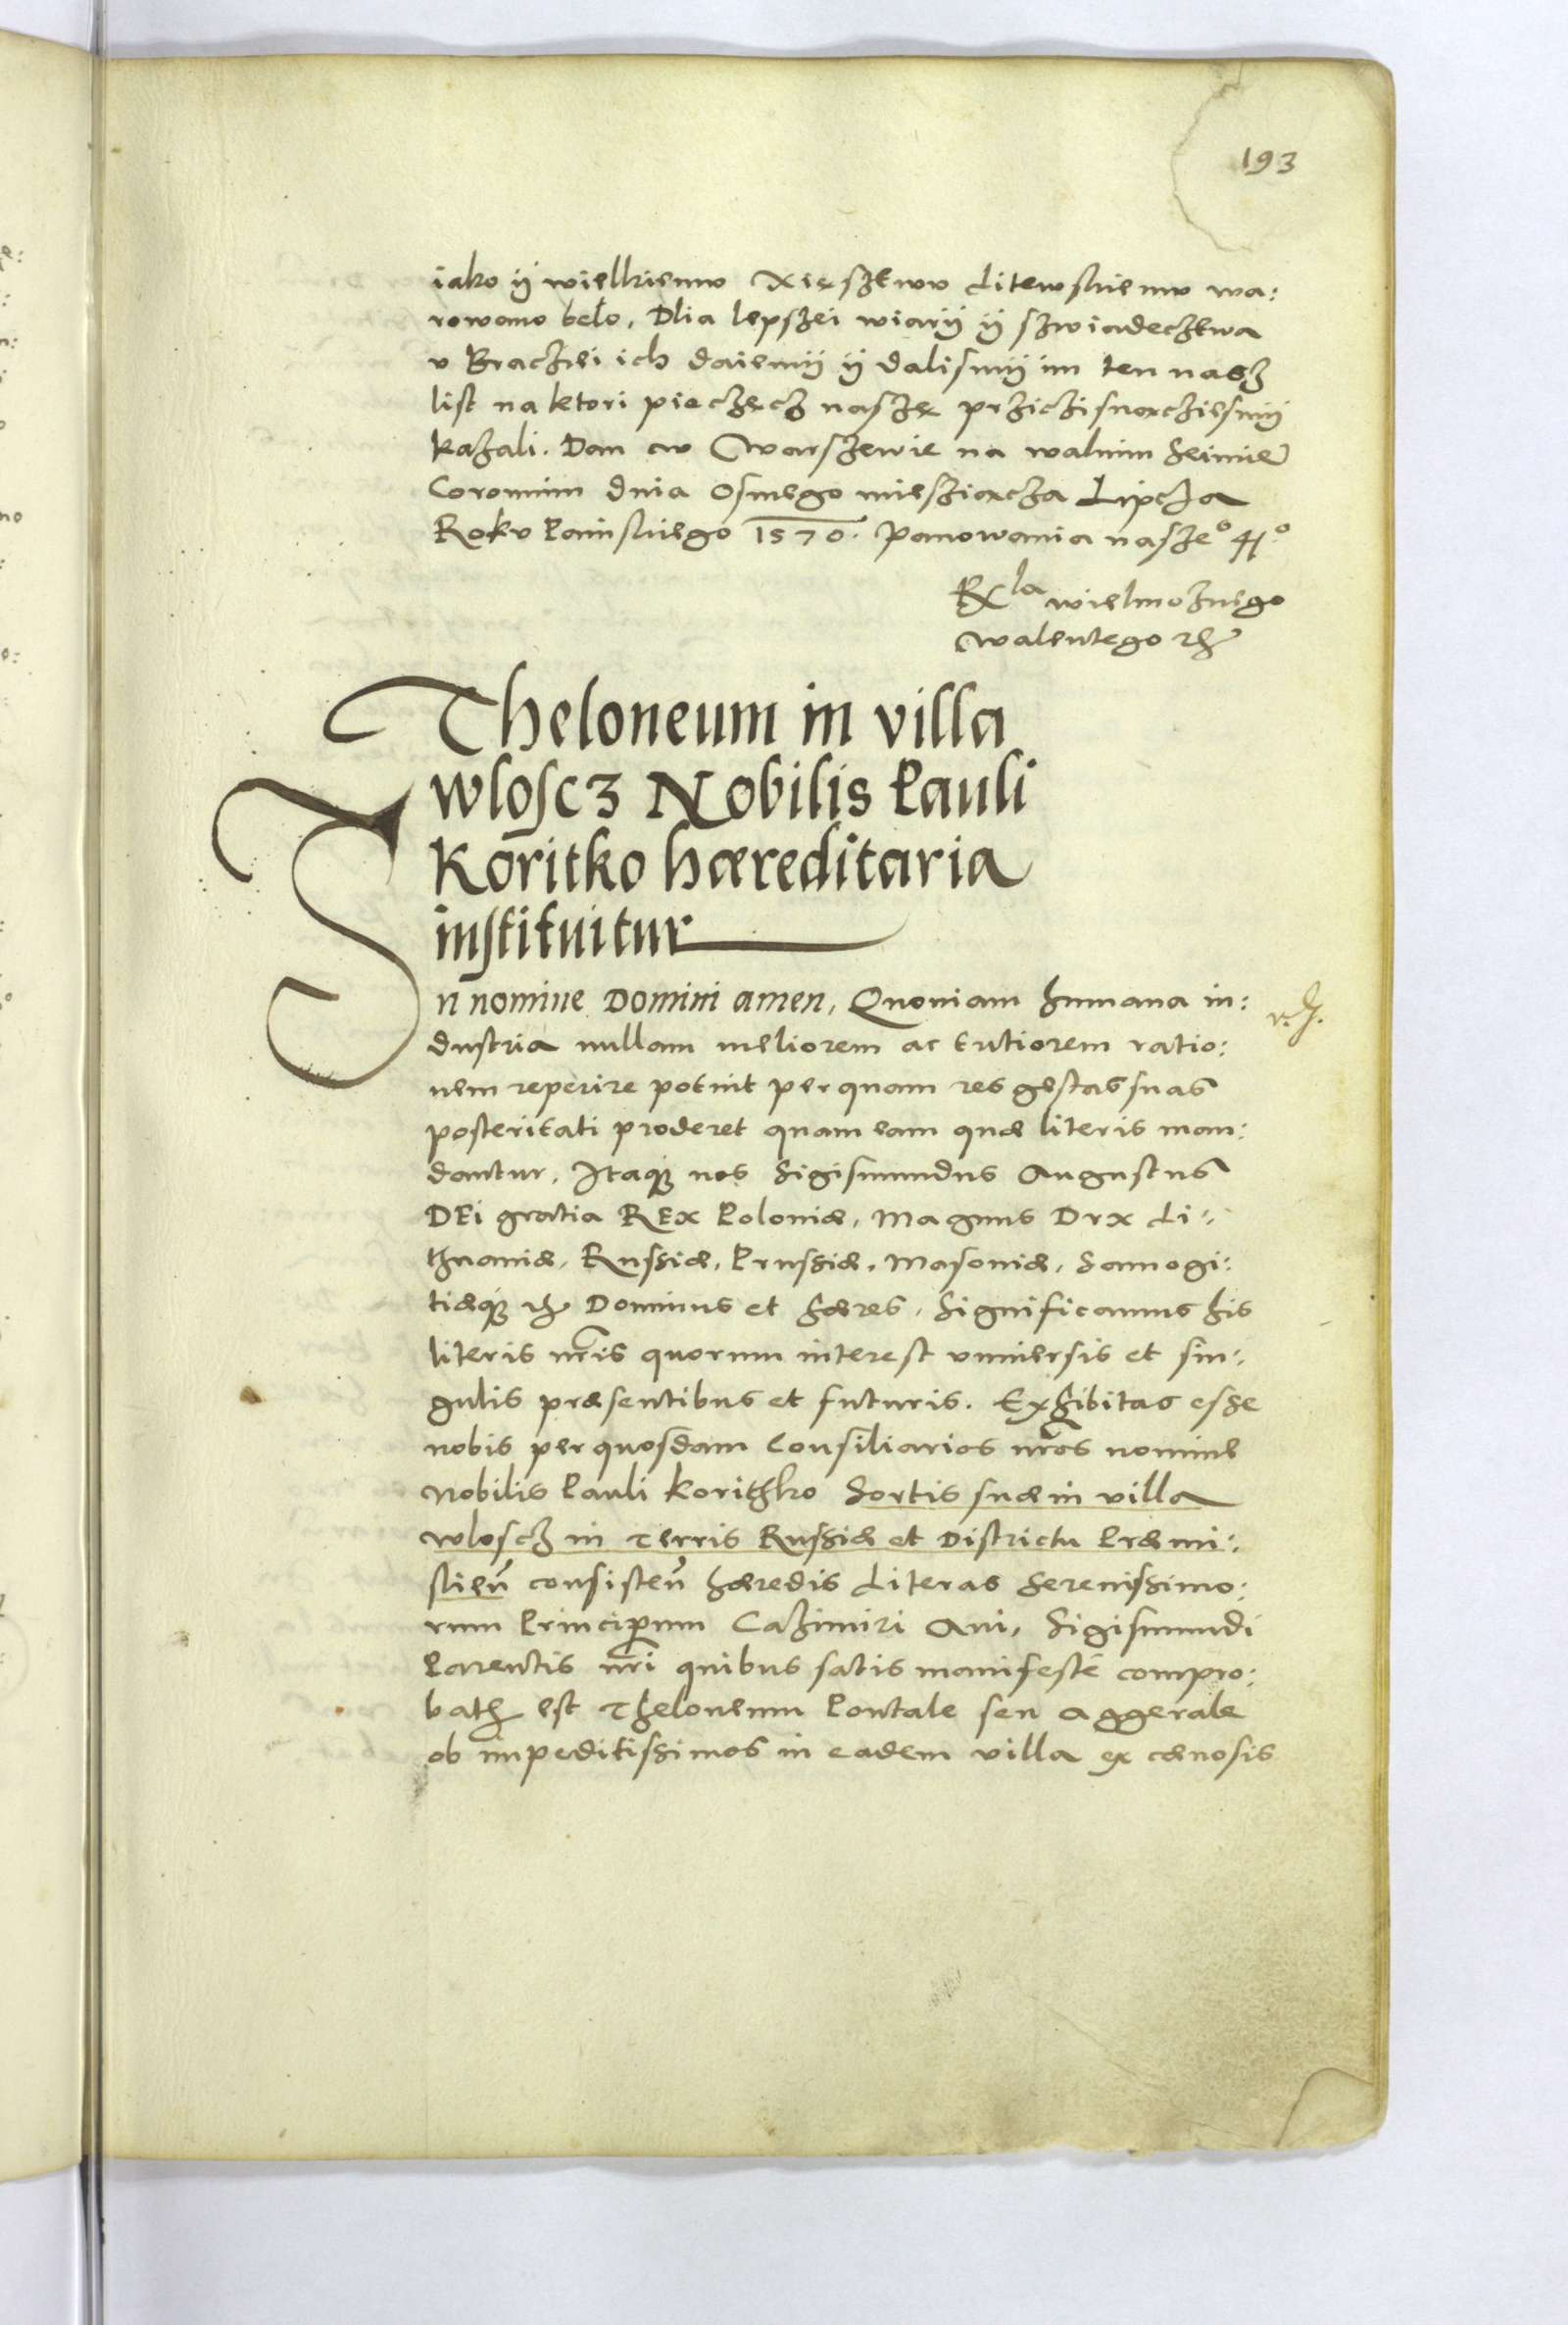 193
iako ÿ wielkiemv Xięsztwv Litewskiemv wa:
rowano beło, Dlia lepszei wiarÿ ÿ szwiadecztwa
v Braczlei ich daiemÿ ÿ dalismÿ im ten nasz
list na ktori pieczęcz naszę przicisnącz iesmÿ
kazali. Dan w Warszewie na walnim Seimie
Coronnim dnia Osmego miesziącza Lipcza
Roku Painskiego 1570. Panowania nasze⁰ 41.⁰
Rx^la wielmoznego
Walentego ꝛꝫ
Theloneum in villa
wloscz Nobilis Pauli
Koritko hæreditaria
instituitur
In nomine Domini amen, Quoniam humana in:
dustria nullam meliorem ac tutiorem ratio:
nem reperire potuit per quam res gestas suas
posteritati proderet quam eam quæ literis man:
dantur, Itaqꝫ nos Sigismundus Augustus
DEi gratia REx Poloniæ, Magnus Dvx Li:
thuaniæ, Russiæ, Prussiæ, Masoviæ, Samogi:
tiæqꝫ ꝛꝫ Dominus et hæres, Significamus his
literis nr̃is quorum interest vniuersis et sin:
gulis præsentibus et futuris. Exhibitas esse
nobis per quosdam Consiliarios nr̃os nomine
Nobilis Pauli Korithko Sortis suæ in villa
wloscz in Terris Russiæ et Districtu Præmi:
slieñ consisteñ hæredis Literas Serenissimo:
rum Principum Cazimiri Aui, Sigismundi
Parentis nr̃i quibus satis manifeste compro:
bath est Theloneum Pontale seu Aggerale
ob impeditissimos in eadem villa ex cænosis